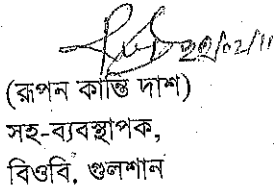 (রূপন কান্তি দাশ)
সহ-ব্যবস্থাপক,
বিওবি, গুলশান